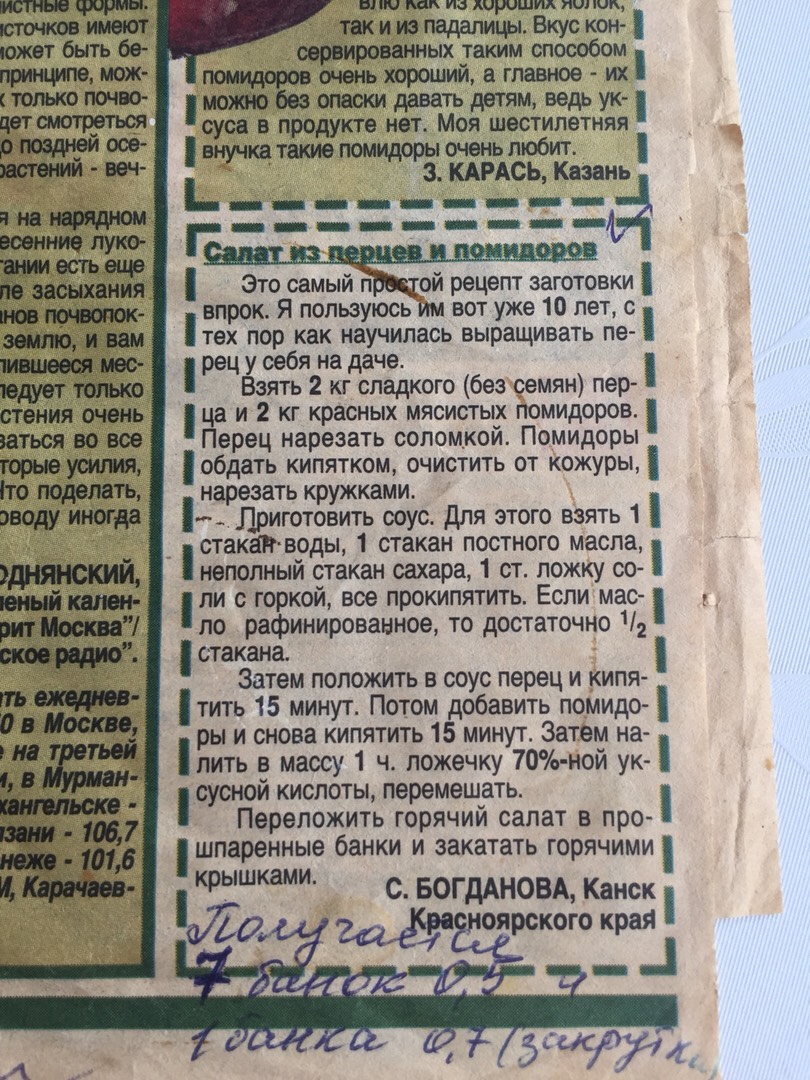 листные формы.
источков имеют
может быть бе-
принципе, мож-
только почво-
дет смотреться
до поздней осе-
растений - веч-
я на нарядном
весенние луко-
тании есть еще
ле засыхания
анов почвопок-
землю, и вам
пившееся мес-
ледует только
стения очень
ваться во все
торые усилия,
Что поделать,
оводу иногда
ОДНЯНСКИЙ,
леный кален-
рит Москва"/
ское радио".
ать ежеднев-
0 в Москве,
е на третьей
и, в Мурман-
хангельске -
язани - 106,7
неже - 101,6
М, Карачаев-
влю как из хороших яблок,
так и из падалицы. Вкус кон-
сервированных таким способом
помидоров очень хороший, а главное - их
можно без опаски давать детям, ведь ук-
суса в продукте нет. Моя шестилетняя
внучка такие помидоры очень любит.
З. КАРАСЬ, Казань
Салат из перцев и помидоров
Это самый простой рецепт заготовки
впрок. Я пользуюсь им вот уже 10 лет, с
тех пор как научилась выращивать пе-
рец у себя на даче.
Взять 2 кг сладкого (без семян) пер-
ца и 2 кг красных мясистых помидоров.
Перец нарезать соломкой. Помидоры
обдать кипятком, очистить от кожуры,
нарезать кружками.
Приготовить соус. Для этого взять 1
стакан воды, 1 стакан постного масла,
неполный стакан сахара, 1 ст. ложку со-
ли с горкой, все прокипятить. Если мас-
ло рафинированное, то достаточно 1/2
стакана.
Затем положить в соус перец и кипя-
тить 15 минут. Потом добавить помидо-
ры и снова кипятить 15 минут. Затем на-
лить в массу 1 ч. ложечку 70%-ной ук-
сусной кислоты, перемешать.
Переложить горячий салат в про-
шпаренные банки и закатать горячими
крышками.
С. БОГДАНОВА, Канск
Красноярского края
Получается
7 банок 0,5 и
1 банка 0,7 (закрутки)